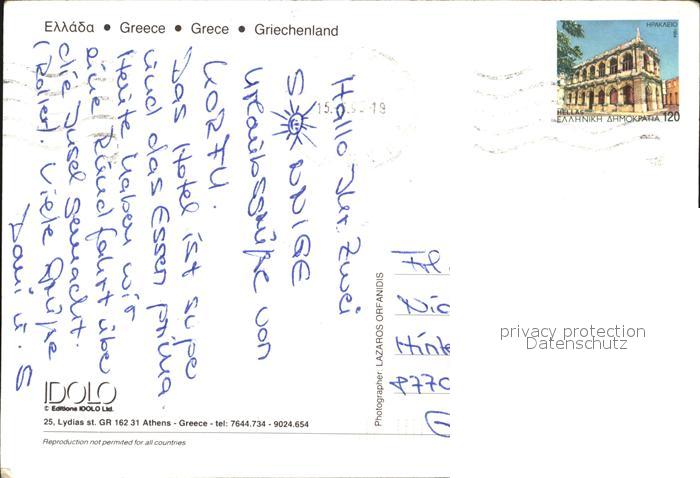 Ελλάδα • Greece • Grece • Griechenland
ΗΡΑΚΛΕΙΟ
HELLAS
ΕΛΛΗΝΙΚΗ ΔΗΜΟΚΡΑΤΙΑ 120
Hallo Ihr Zwei
SONNIGE
URlaubsgrüße von
KORFU.
Das Hotel ist supe
und das Essen prima.
Heute haben wir
eine Rundfahrt übe
die Insel gemacht.
(Roller). Viele Grüße
Dani u. S
Photographer: LAZAROS ORFANIDIS
Nic
Hint
8770
privacy protection
Datenschutz
IDOLO
© Editions IDOLO Ltd.
25, Lydias st. GR 162 31 Athens - Greece - tel: 7644.734 - 9024.654
Reproduction not permited for all countries